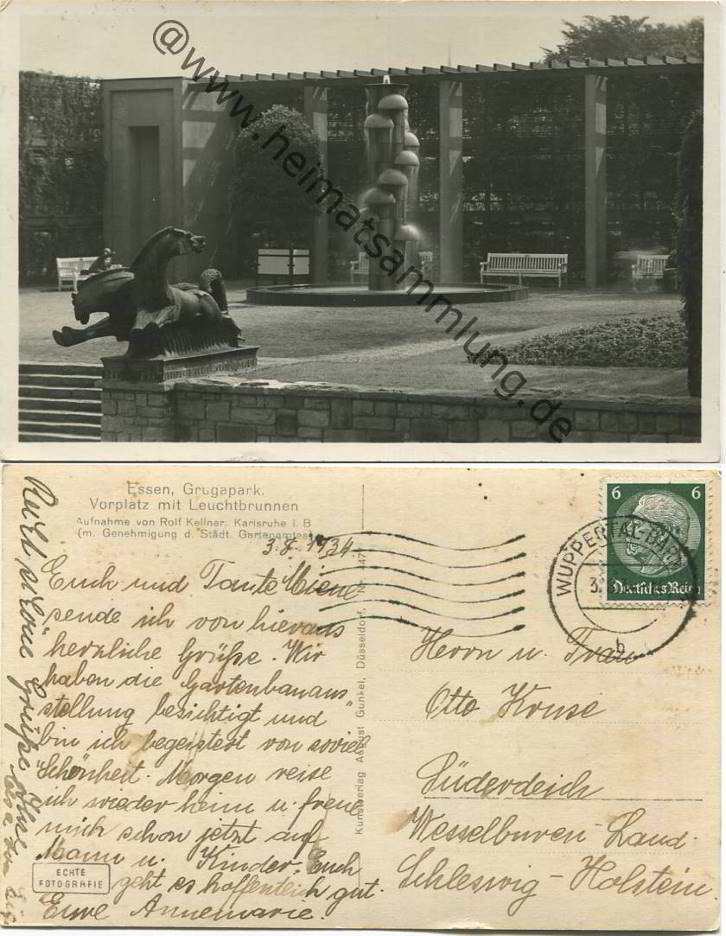 @www.heimatsammlung.de
Essen, Grugapark.
Vorplatz mit Leuchtbrunnen
Aufnahme von Rolf Kellner, Karlsruhe i. B
(m. Genehmigung d. Städt. Gartenamtes)
3.8.1934.
Euch und Tante Miene
sende ich von hieraus
herzliche Grüße. Wir
haben die "Gartenbauaus
stellung" besichtigt und
bin ich begeistert von soviel
Schönheit. Morgen reise
ich wieder heim u. freue
mich schon jetzt auf
Mann u. Kinder. Euch
geht es hoffentlich gut.
Eure Annemarie.
Recht schöne Grüße
ECHTE
FOTOGRAFIE
Kunstverlag August Gunkel, Düsseldorf.
6 6
Deutsches Reich
WUPPERTAL-BAR
3.
b
Herrn u. Frau
Otto Kruse
Süderdeich
Wesselburen-Land.
Schleswig-Holstein